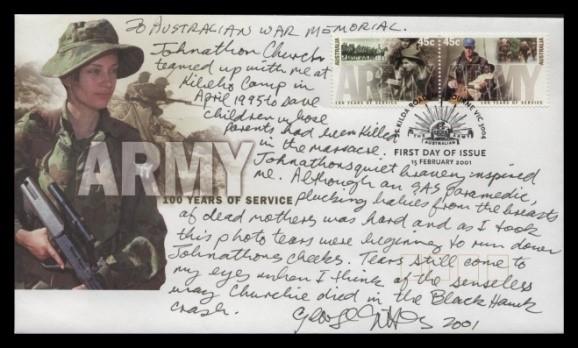 To AUSTRALIAN WAR MEMORIAL.
Johnathon Church
teamed up with me at
Kibeho Camp in
April 1995 to save
children whose
parents had been killed
in the massacre.
Johnathons quiet bravery inspired
me. Although an SAS paramedic,
plucking babies from the breasts
of dead mothers was hard and as I took
this photo tears were beginning to run down
Johnathons cheeks. Tears still come to
my eyes when I think of the senseless
way Churchie died in the Black Hawk
crash.
George Gittoes 2001
ARMY
100 YEARS OF SERVICE
AUSTRALIA
45c
45c
AUSTRALIA
ARMY
ARMY
100 YEARS OF SERVICE
100 YEARS OF SERVICE
ST. KILDA ROAD MELBOURNE VIC 3004
THE ARMY
AUSTRALIAN
FIRST DAY OF ISSUE
15 FEBRUARY 2001